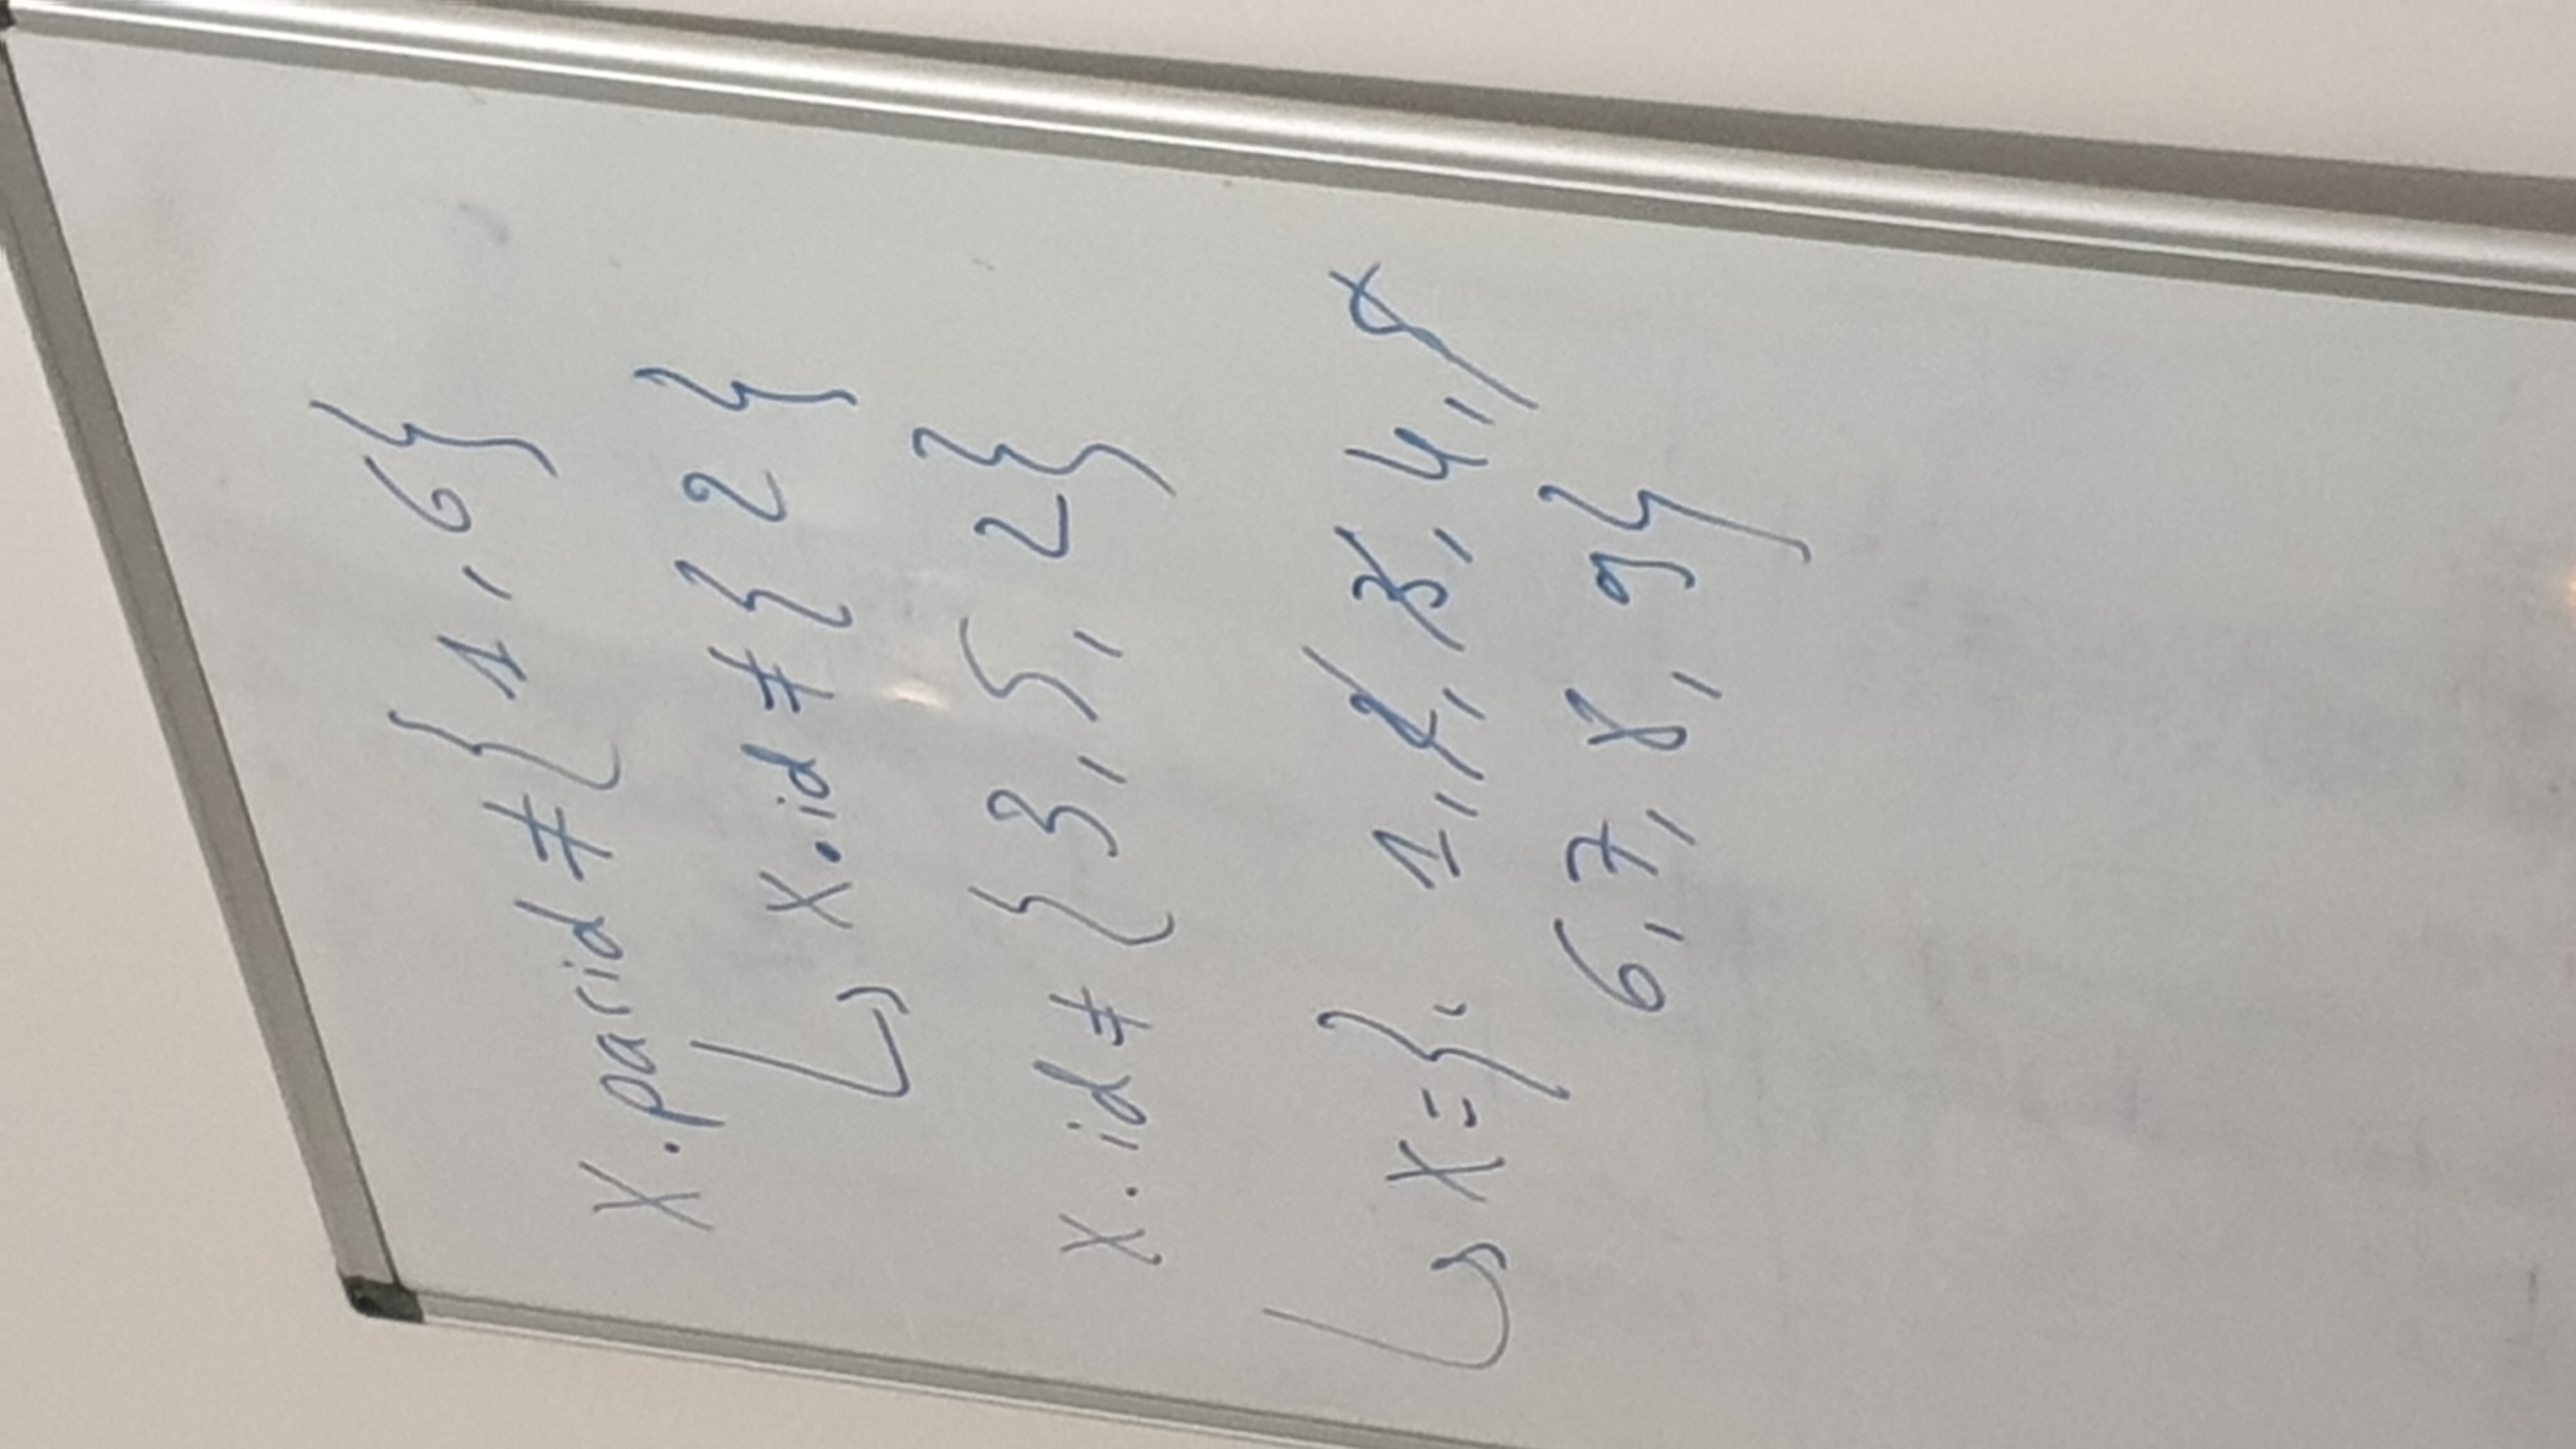 X.parid ≠ {1, 6}
↳ X.id ≠ { 2 }
X.id ≠ { 3, 5, 2}
↳ X = }. 1, 2, 3, 4, 5
6, 7, 8, 9}